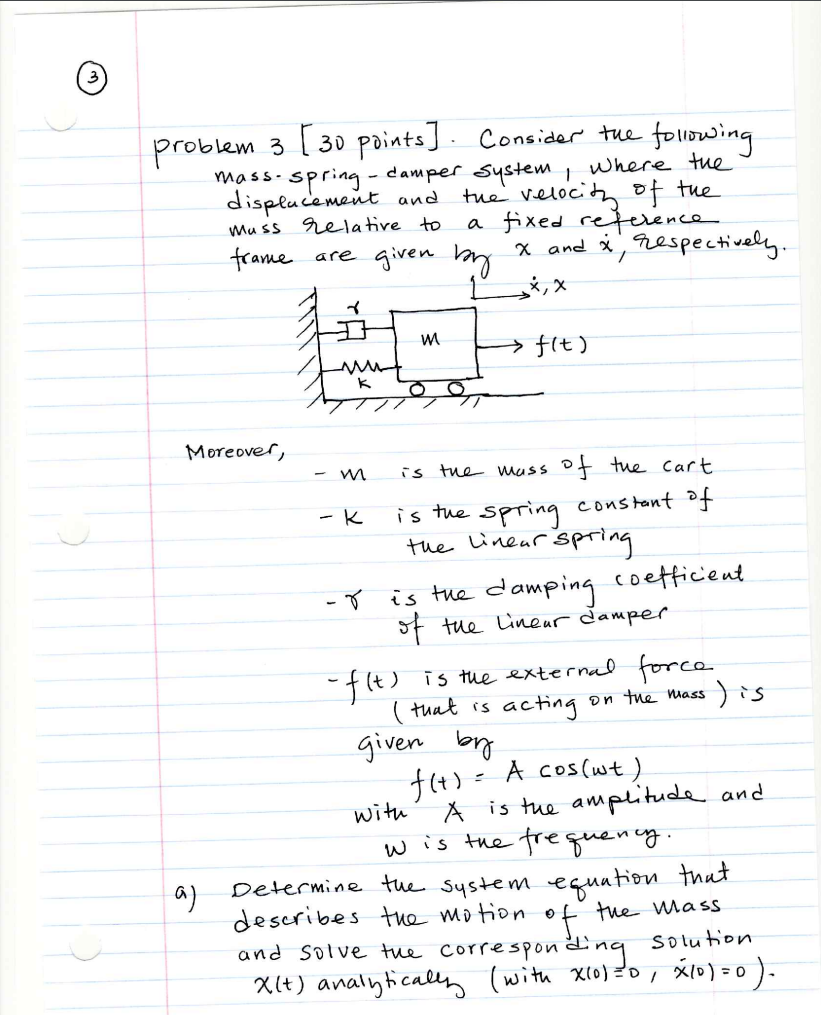 3
problem 3 [30 points]. Consider the following
mass-spring-damper system, where the
displacement and the velocity of the
mass relative to a fixed reference
frame are given by x and ẋ, respectively.
ẋ, x
γ
m
f(t)
k
Moreover,
- m is the mass of the cart
- k is the spring constant of
the linear spring
- γ is the damping coefficient
of the linear damper
- f(t) is the external force
(that is acting on the mass) is
given by
f(t) = A cos(ωt)
with A is the amplitude and
ω is the frequency.
a) Determine the system equation that
describes the motion of the mass
and solve the corresponding solution
x(t) analytically (with x(0)=0, ẋ(0)=0).